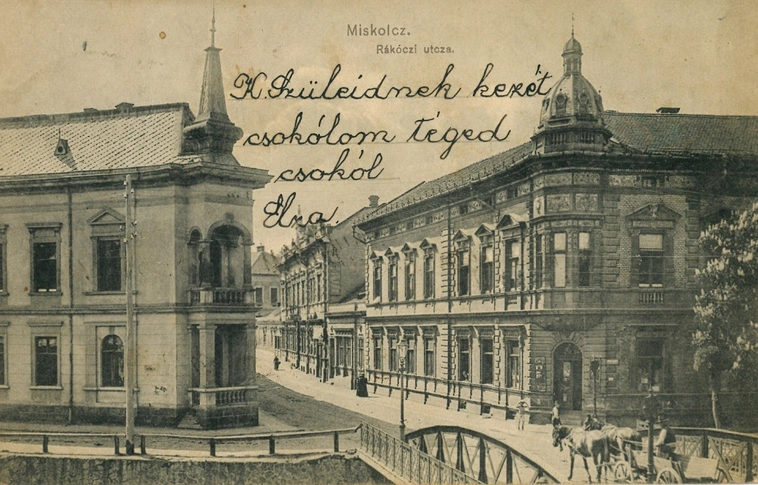 Miskolcz.
Rákóczi utcza.
K. Szüleidnek kezét
csokólom Téged
csokól
Elza.